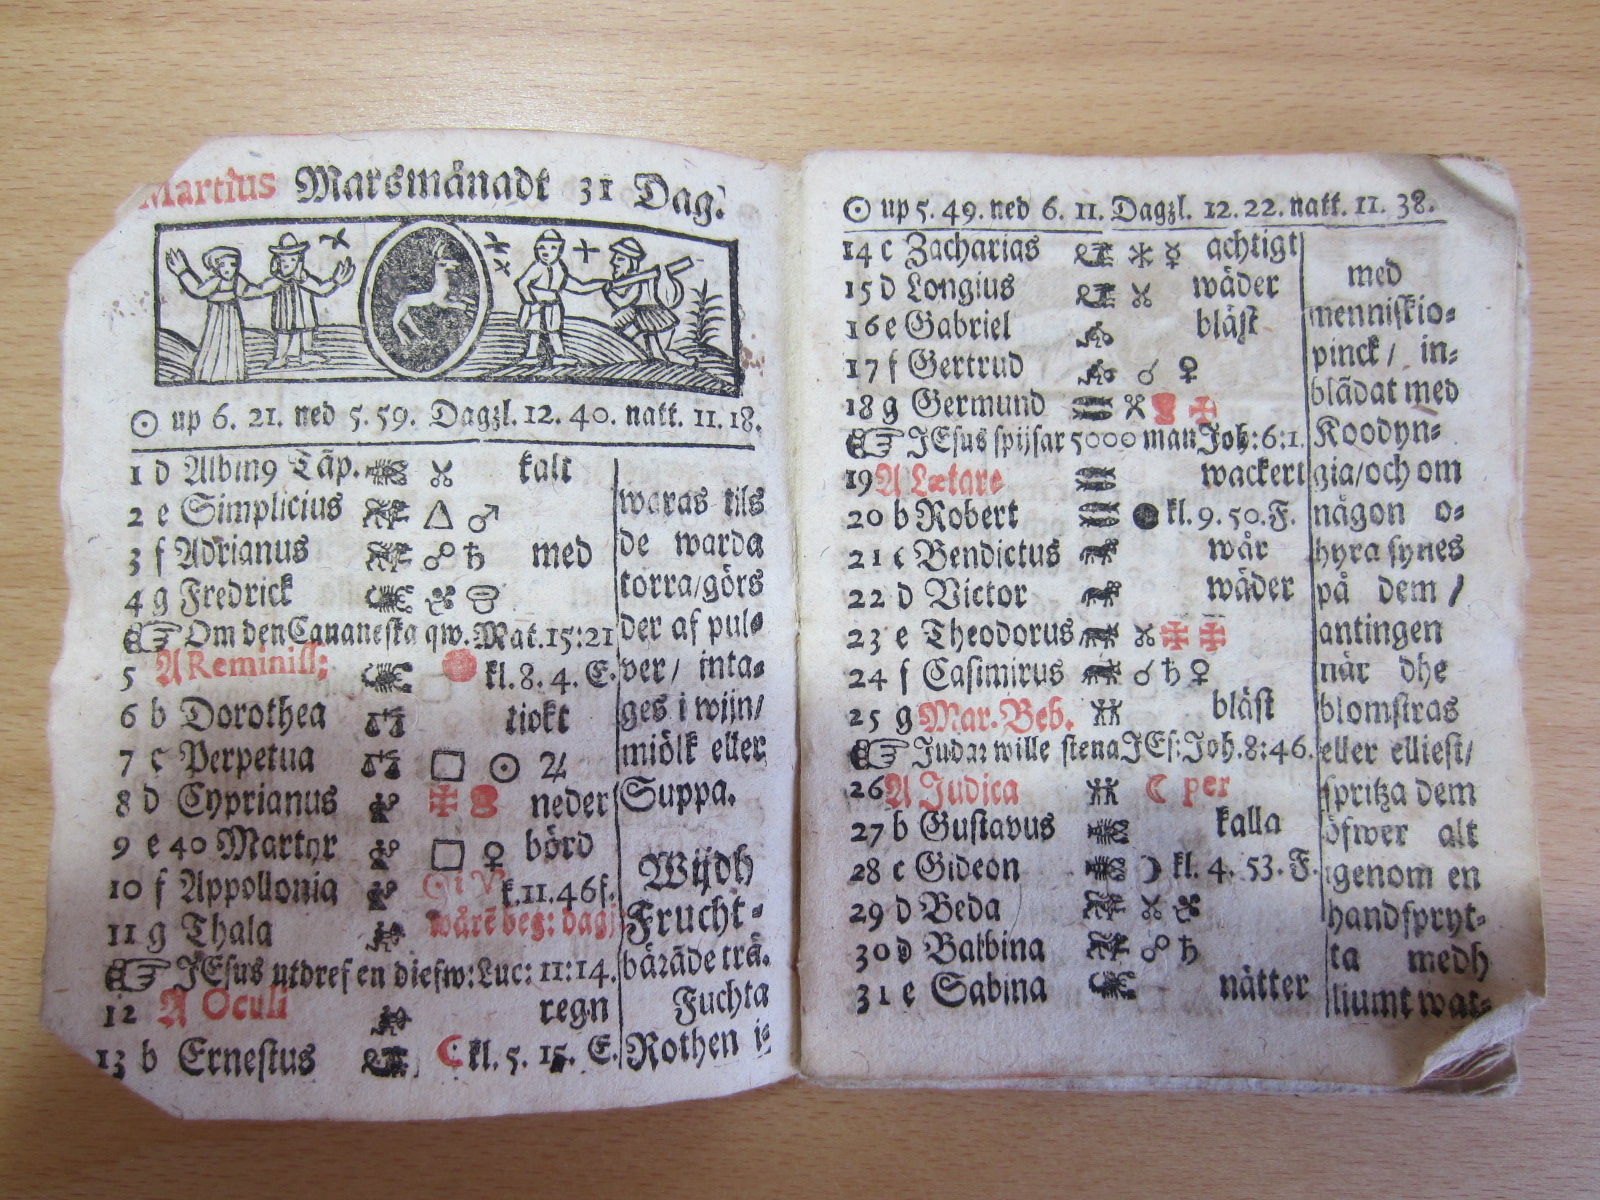 Martius Marsmånadt 31 Dag.
☉ up 6. 21. ned 5. 59. Dagzl. 12. 40. natt. 11. 18.
1 d Albin9 Tåp. kalt
2 e Simplicius △ ♂
3 f Adrianus ☍ ♄ med
4 g Fredrick
Om den Cananeska qw. Mat. 15:21
5 A Reminiss: kl. 8. 4. E.
6 b Dorothea tiokt
7 c Perpetua □ ☉ ♃
8 d Cyprianus neder
9 e 40 Martyr □ ♀ börd
10 f Appollonia ☉ i ♈ k. 11. 46 f.
11 g Thala wårē beg: dagj:
JEsus utdref en diefw: Luc: 11:14.
12 A Oculi regn
13 b Ernestus ☾ kl. 5. 15. E.
waras tils
de warda
torra/görs
der af pul-
ver/ inta-
ges i wijn/
miölk eller
Suppa.
Wijdh
Frucht-
bärāde trä.
Fuchta
Rothen i-
☉ up 5. 49. ned 6. 11. Dagzl. 12. 22. natt. 11. 38.
14 c Zacharias ☿ achtigt
15 d Longius wäder
16 e Gabriel bläst
17 f Gertrud ☌ ♀
18 g Germund
JEsus spijsar 5000 man Joh: 6:1.
19 A Lætare wackert
20 b Robert ● kl. 9. 50. F.
21 c Bendictus wår
22 d Victor wäder
23 e Theodorus
24 f Casimirus ☌ ♄ ♀
25 g Mar. Beb. bläst
Judar wille stena JEs: Joh. 8:46.
26 A Judica ☾ per
27 b Gustavus kalla
28 c Gideon ☽ kl. 4. 53. F.
29 d Beda
30 d Balbina ☍ ♄
31 e Sabina nätter
med
menniskio-
pinck/ in-
blädat med
Koodyn-
gia/och om
någon o-
hyra synes
på dem/
antingen
når dhe
blomstras
eller elliest/
spritza dem
öfwer alt
igenom en
handspryt-
ta medh
liumt wat-